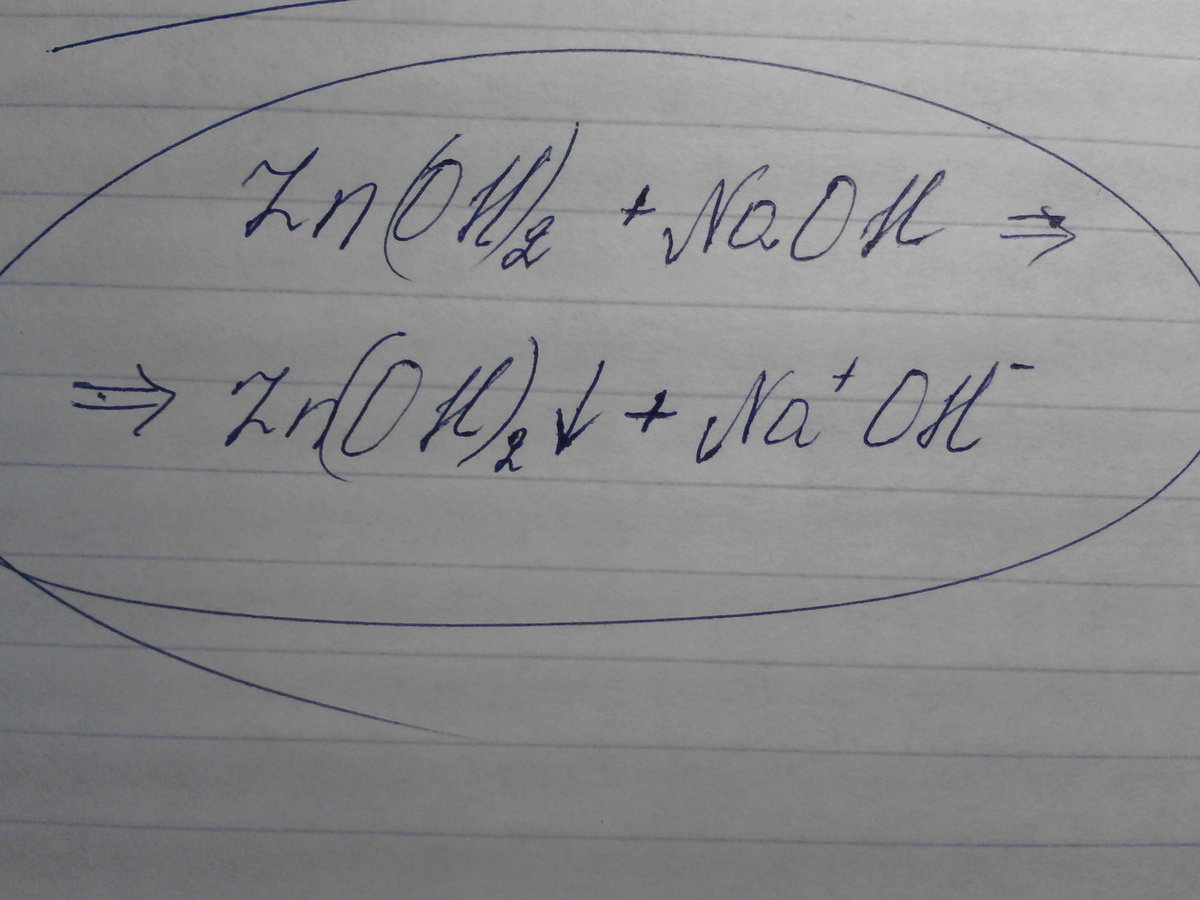 Zn(OH)₂ + NaOH ⇒
⇒ Zn(OH)₂↓ + Na⁺OH⁻